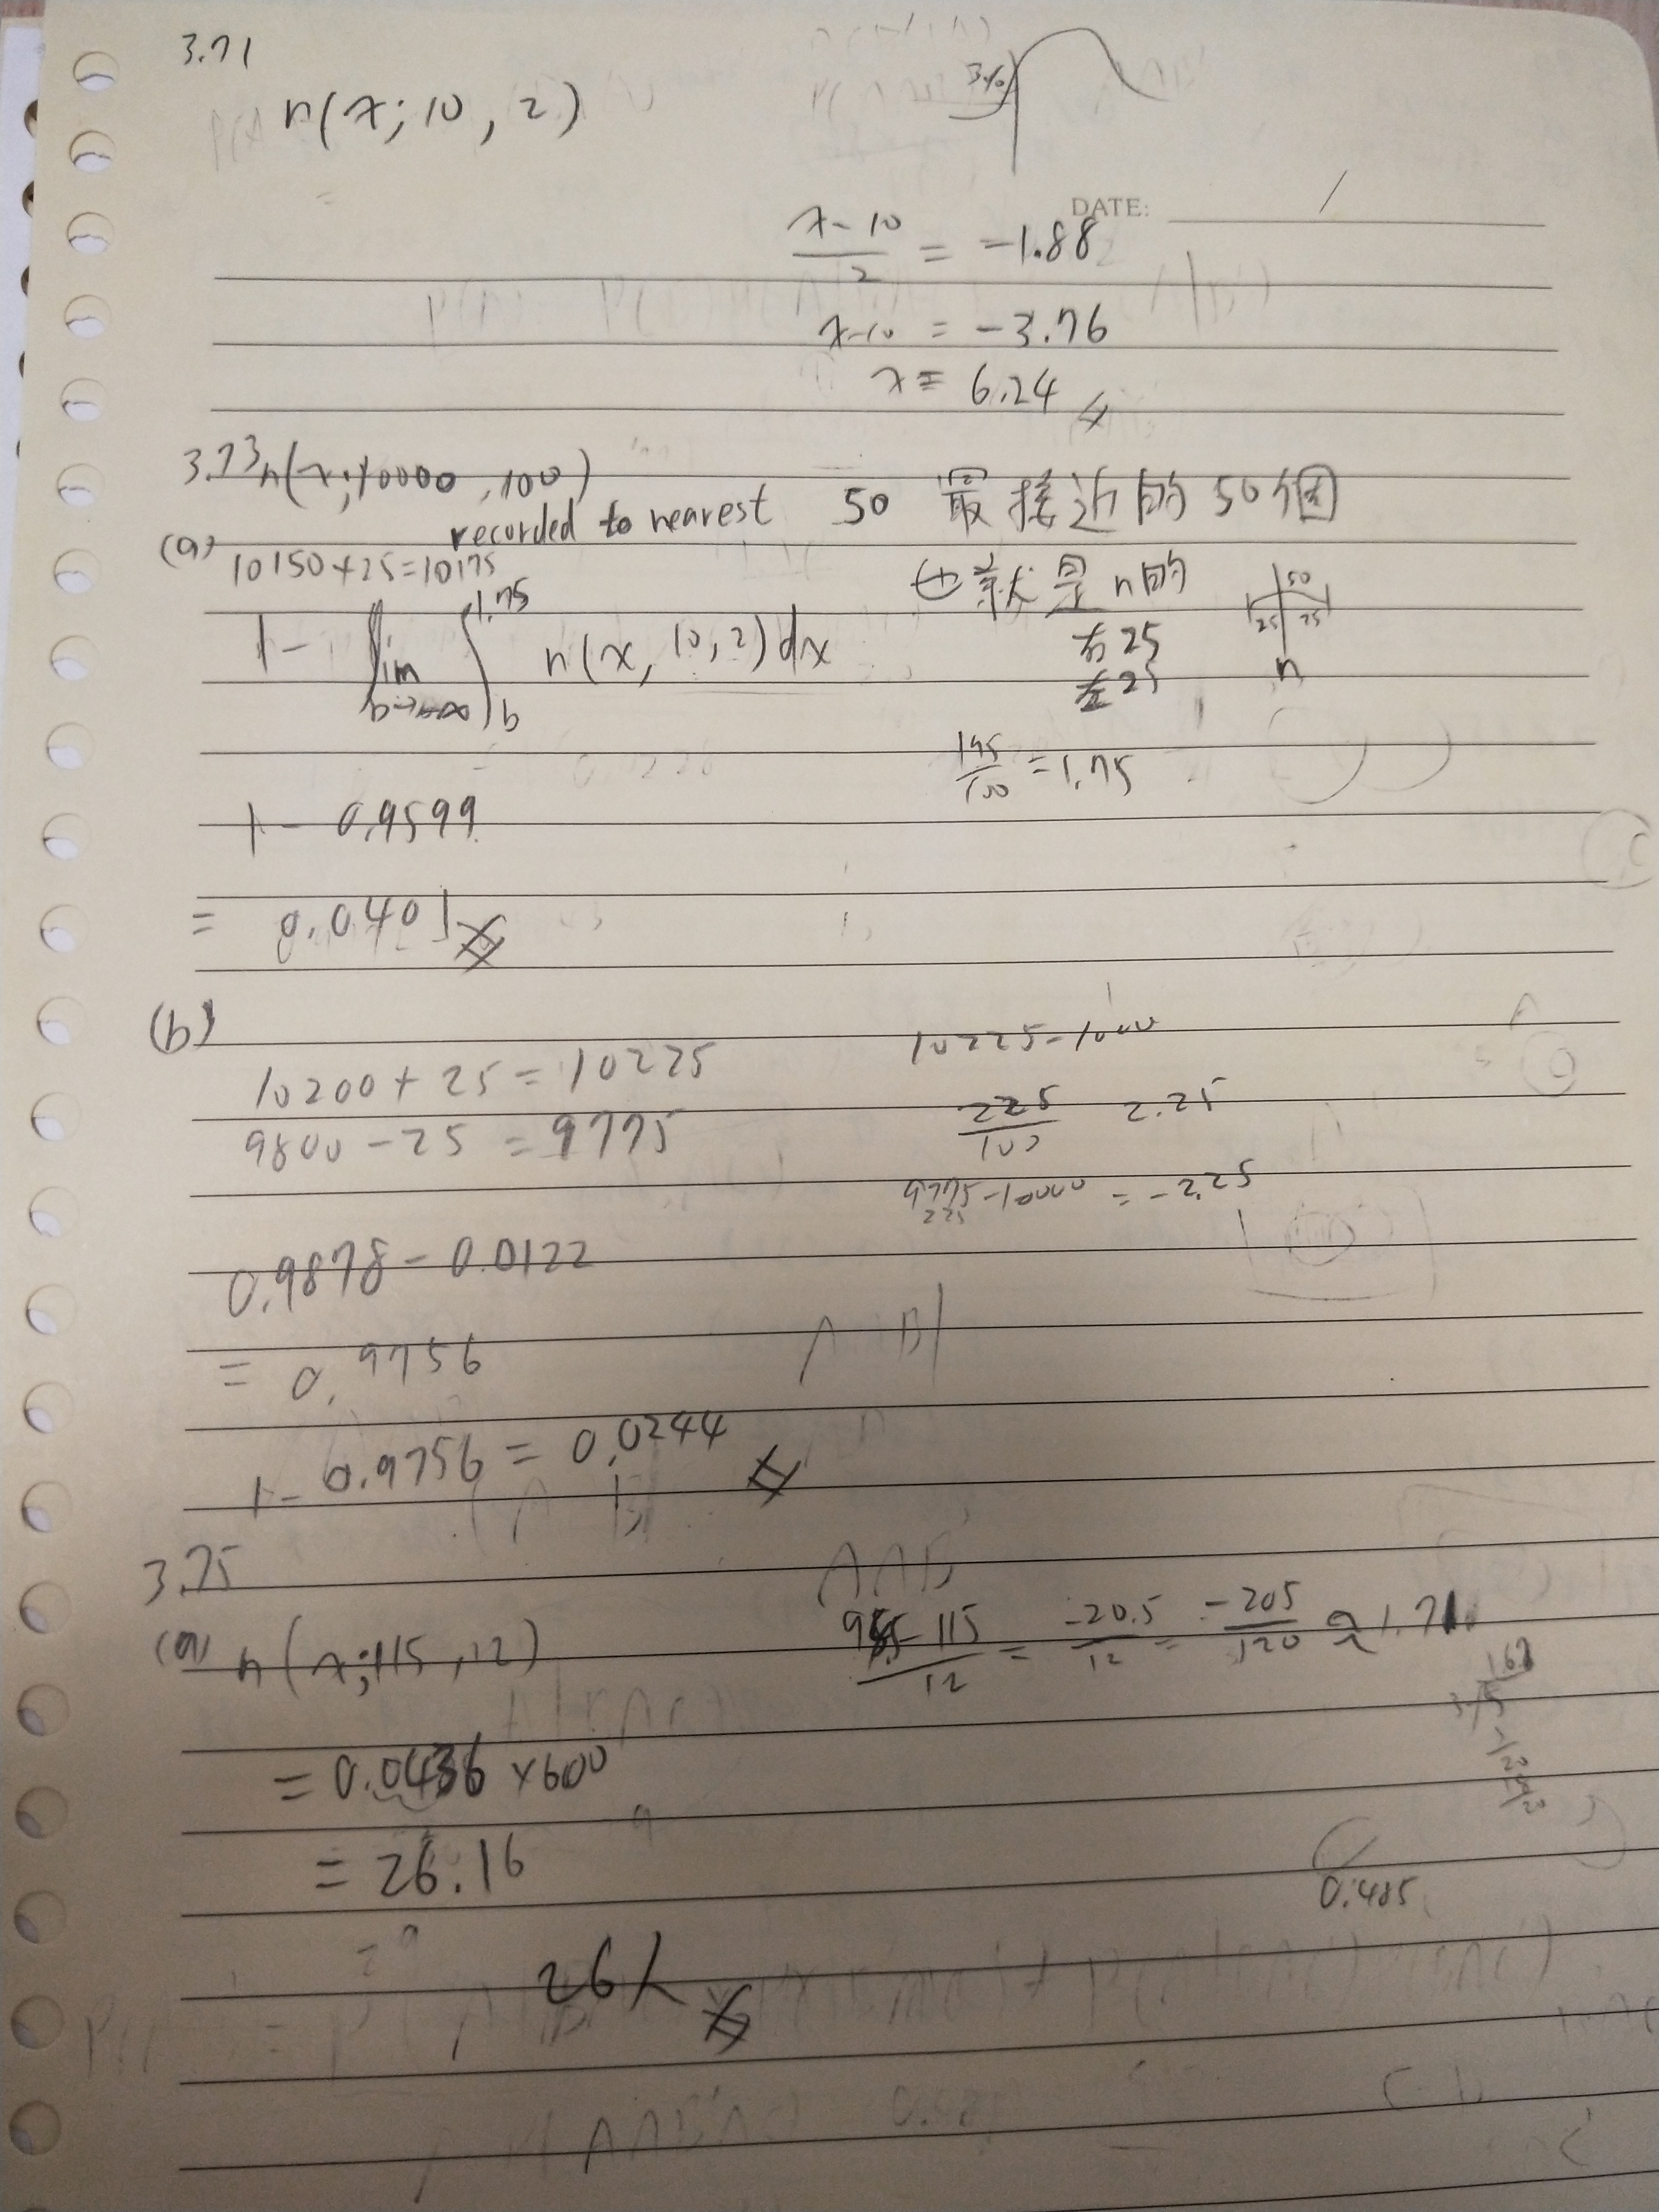 3.71
n(x; 10, 2)
3%
DATE: /
x-10/2 = -1.88
x-10 = -3.76
x = 6.24
3.73 n(x; 10000, 100)
recorded to nearest 50 最接近的50個
(a) 10150+25=10175
也就是n的
右25
左25
50
25 25
n
1 - lim b→-∞ ∫ b 1.75 n(x, 10, 2) dx
175/100 = 1.75
1 - 0.9599
= 0.0401
(b)
10200 + 25 = 10225
10225-1000
9800 - 25 = 9775
225/100 2.25
9775-10000 = -2.25
225
0.9878 - 0.0122
= 0.9756
1 - 0.9756 = 0.0244
3.75
(a) n(x; 115, 12)
-115/12 = -20.5/12 = -205/120 ≈ 1.71
= 0.0436 × 600
= 26.16
0.485
26人